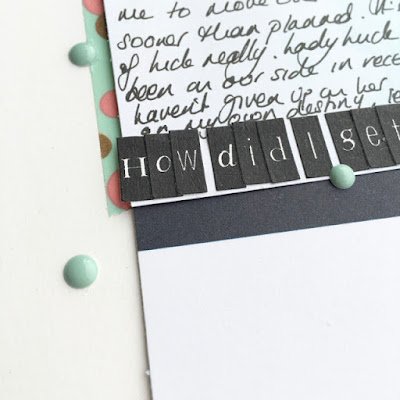 me to move
sooner than planned. Thi
of luck really. Lady luck
been on our side in rece
haven't given up on her
on my own destiny.
How did I get